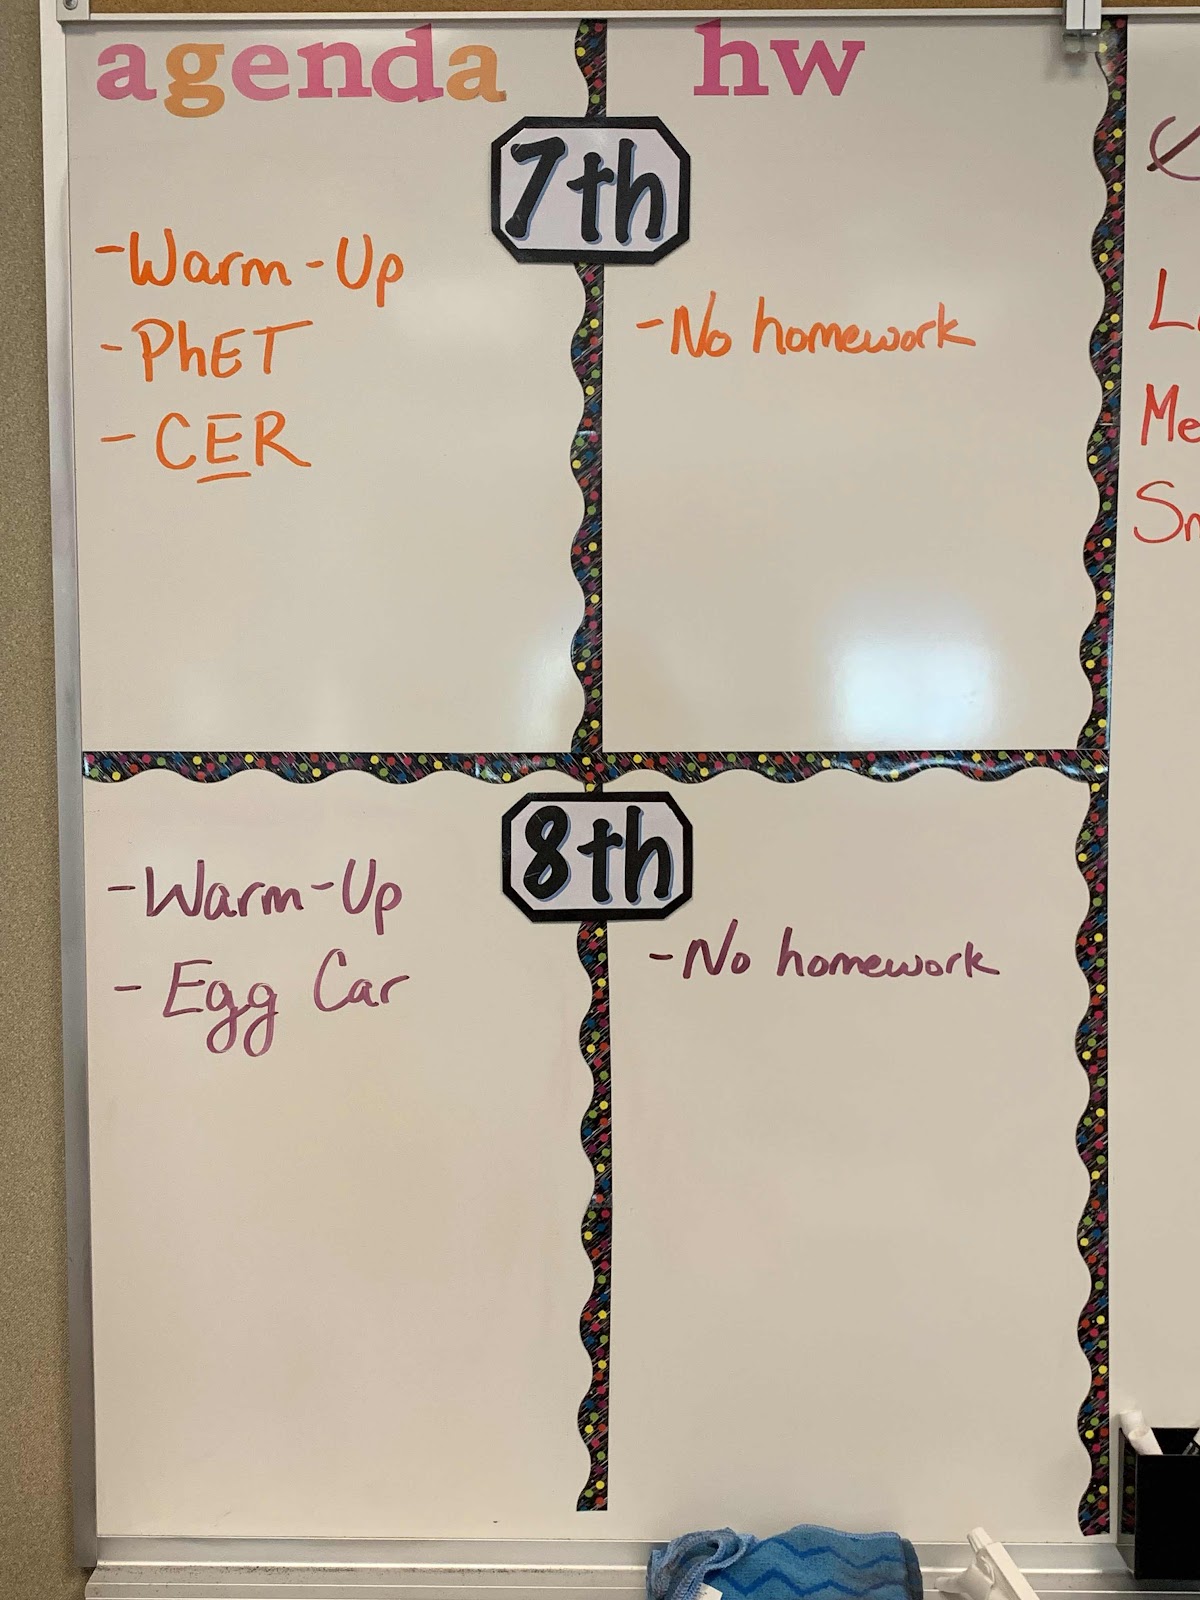 agenda
hw
7th
-Warm-Up
-PhET
-CER
-No homework
8th
-Warm-Up
-Egg Car
-No homework